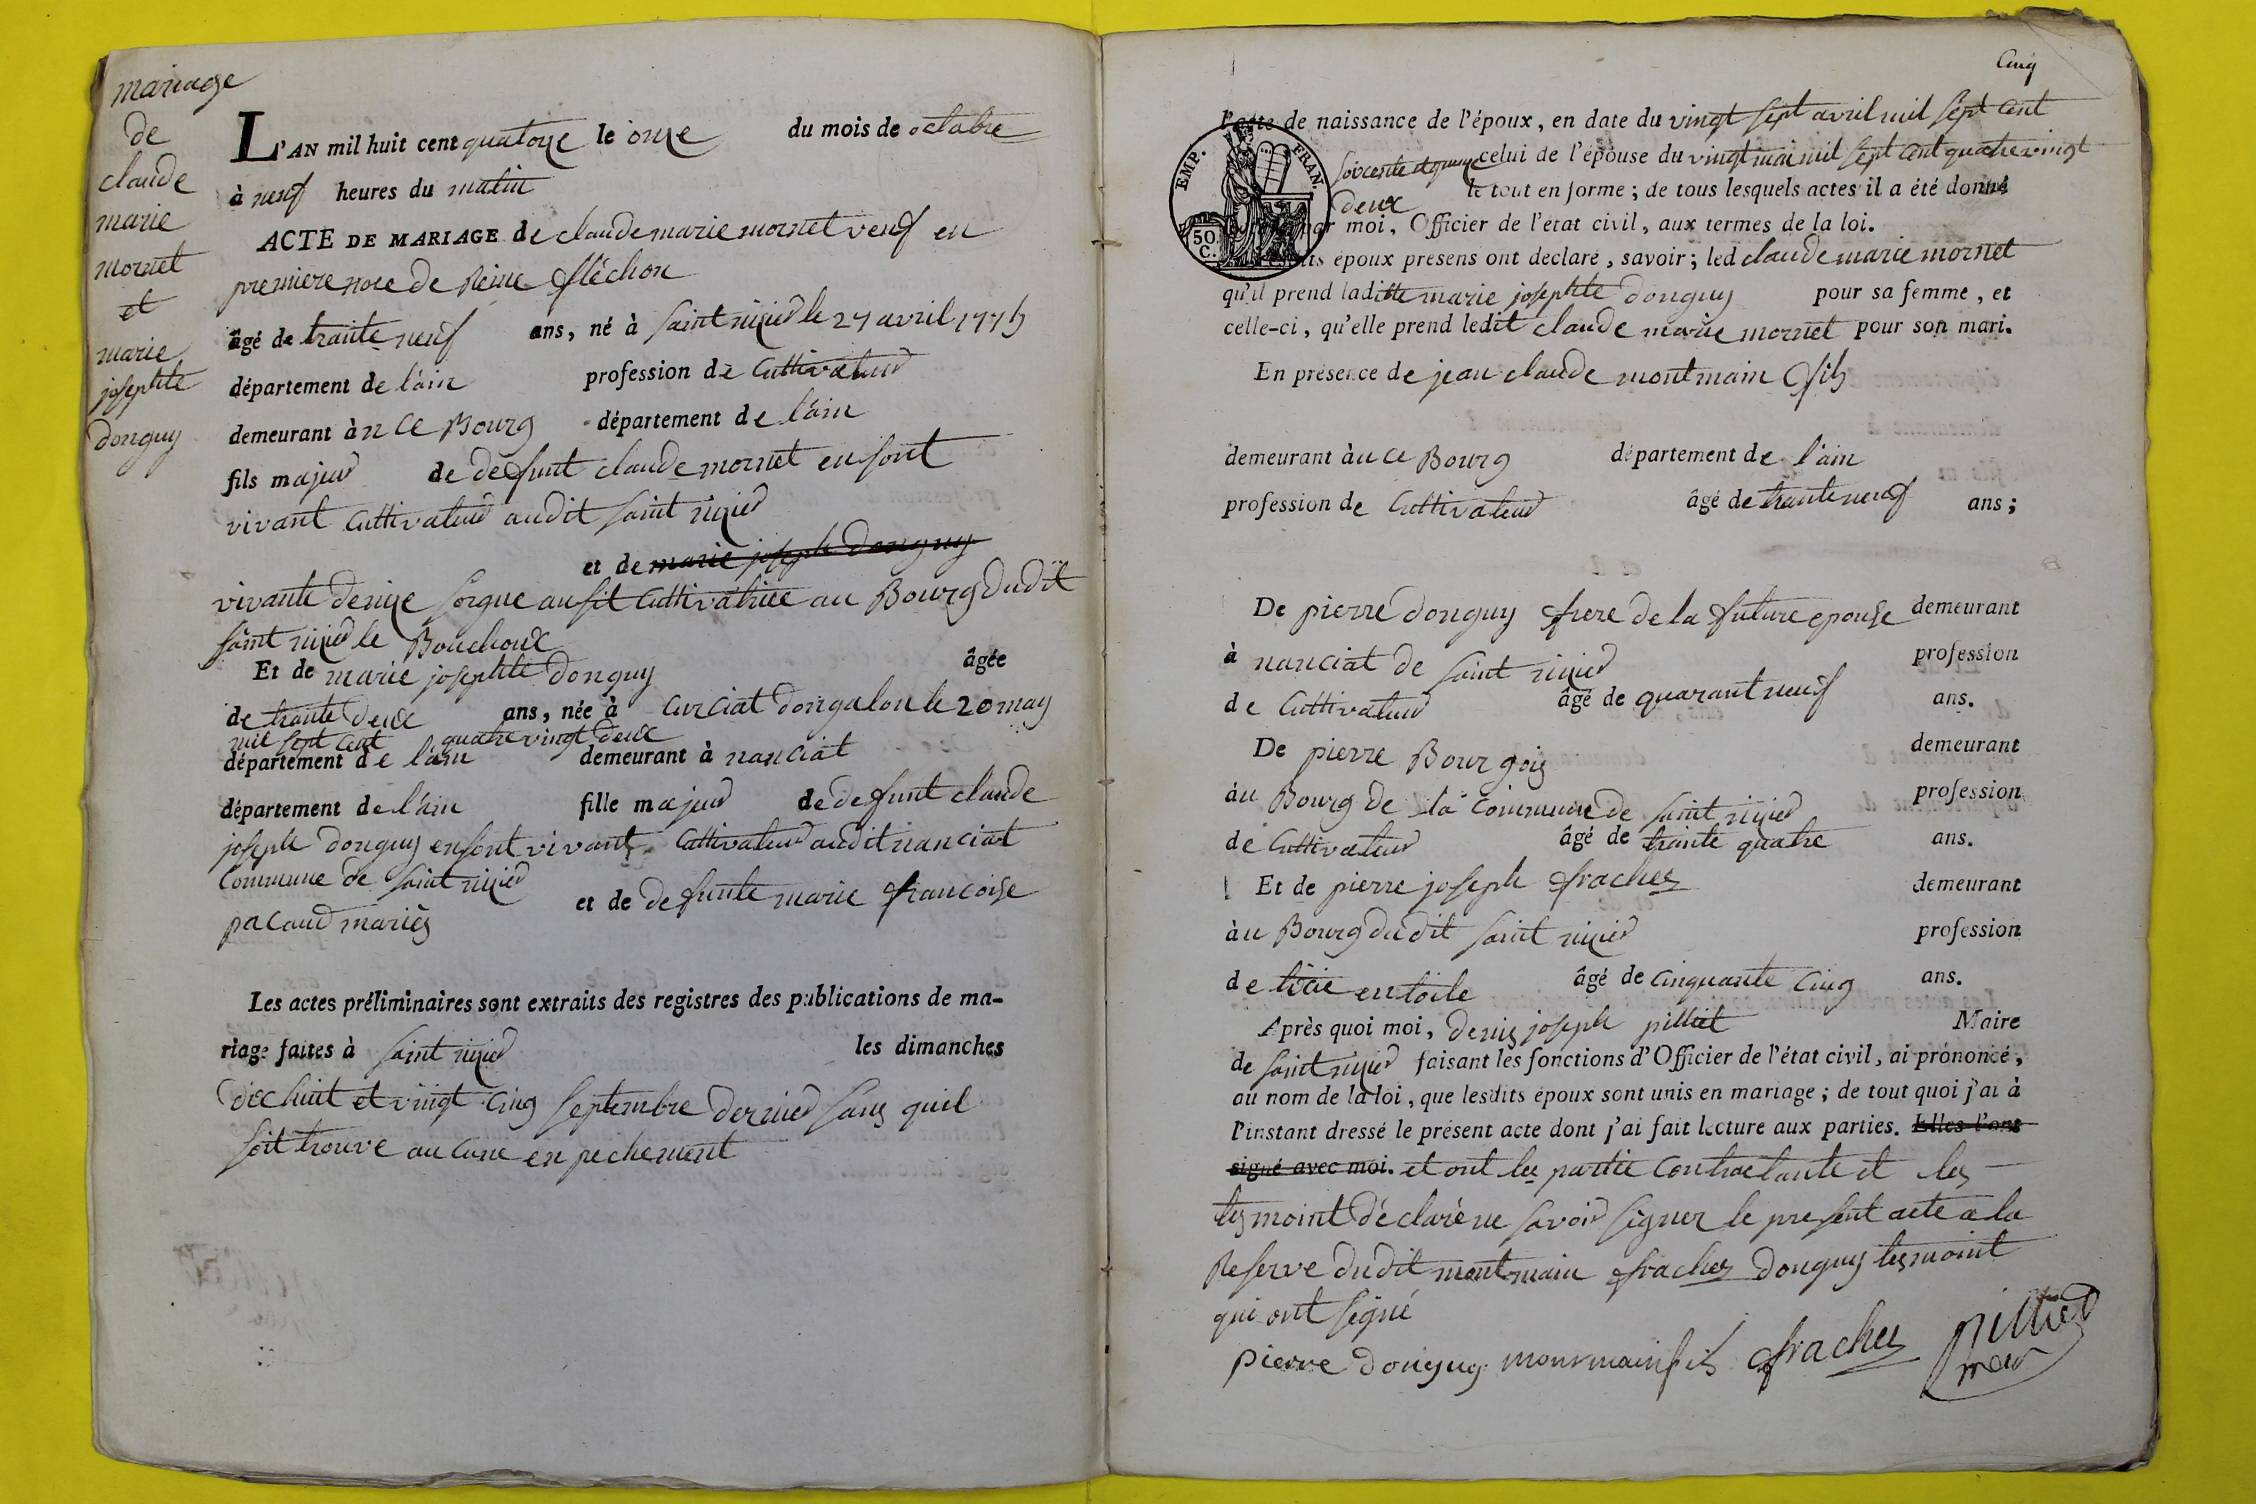 mariage
de
claude
marie
mornet
et
marie
josephte
donguy
L'AN mil huit cent quatorze le onze du mois de octobre
à neuf heures du matin
ACTE DE MARIAGE de claude marie mornet veuf en
premiere noce de Reine fléchon
âgé de trante neuf ans, né à saint nizier le 27 avril 1775
département de l'ain profession de Cultivateur
demeurant àu ce Bourg département de l'ain
fils majeur de defunt claude mornet en sont
vivant Cultivateur audit saint nizier
et de marie joseph donguy
vivante denize sorgue ausit Cultivatrice au Bourg dudit
saint nizier le Bouchoux
Et de marie josephte donguy âgée
de trante deux ans, née à Curciat dongalon le 20 may
mil sept cent quatre vingt deux
département de l'ain demeurant à nanciat
département de l'ain fille majeur de defunt claude
joseph donguy en sont vivant Cultivateur audit nanciat
Commune de saint nizier et de defunte marie francoise
pacaud mariès
Les actes préliminaires sont extraits des registres des publications de ma-
riage faites à saint nizier les dimanches
dix huit et vingt cinq septembre dernier sans quil
soit trouve aucune enpechement
Cinq
l'acte de naissance de l'époux, en date du vingt sept avril mil sept cent
soixente et quinze celui de l'épouse du vingt mai mil sept cent quatre vingt
deux le tout en forme; de tous lesquels actes il a été donné
par moi, Officier de l'état civil, aux termes de la loi.
EMP. FRAN.
50. C.
époux présens ont déclaré, savoir; led claude marie mornet
qu'il prend laditte marie josephte donguy pour sa femme, et
celle-ci, qu'elle prend ledit claude marie mornet pour son mari.
En présence de jean claude montmain fils
demeurant àu ce Bourg département de l'ain
profession de Cultivateur âgé de trante neuf ans;
De pierre donguy frere de la future epouse demeurant
à nanciat de saint nizier profession
de Cultivateur âgé de quarant neuf ans.
De pierre Bourgois demeurant
àu Bourg de la Commune de saint nizier profession
de Cultivateur âgé de trante quatre ans.
Et de pierre joseph frachez demeurant
àu Bourg dudit saint nizier profession
de en toile âgé de cinquante cinq ans.
Après quoi moi, denis joseph pilliet Maire
de saint nizier faisant les fonctions d'Officier de l'état civil, ai prononcé,
au nom de la loi, que lesdits époux sont unis en mariage; de tout quoi j'ai à
l'instant dressé le présent acte dont j'ai fait lecture aux parties. Elles l'ont
signé avec moi. et ont les partie Contractante et les
tesmoint déclaré ne savoir signer le present acte a la
Reserve dudit montmain frachez donguy tesmoint
qui ont signé
pierre donguy monmain fils frachez pilliet